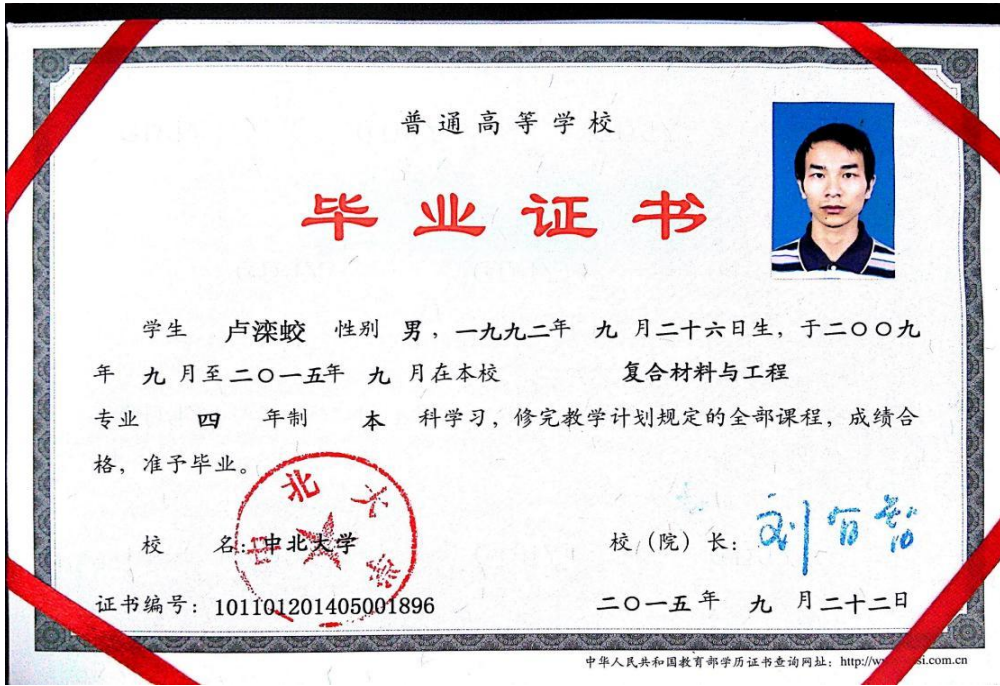 普通高等学校
毕业证书
学生 卢滦蛟 性别 男，一九九二年 九 月二十六日生，于二〇〇九
年 九 月至二〇一五年 九 月在本校 复合材料与工程
专业 四 年制 本 科学习，修完教学计划规定的全部课程，成绩合
格，准予毕业。
校 名：中北大学 校（院）长：刘有智
中北大学
证书编号：101101201405001896 二〇一五年 九 月二十二日
中华人民共和国教育部学历证书查询网址：http://w si.com.cn